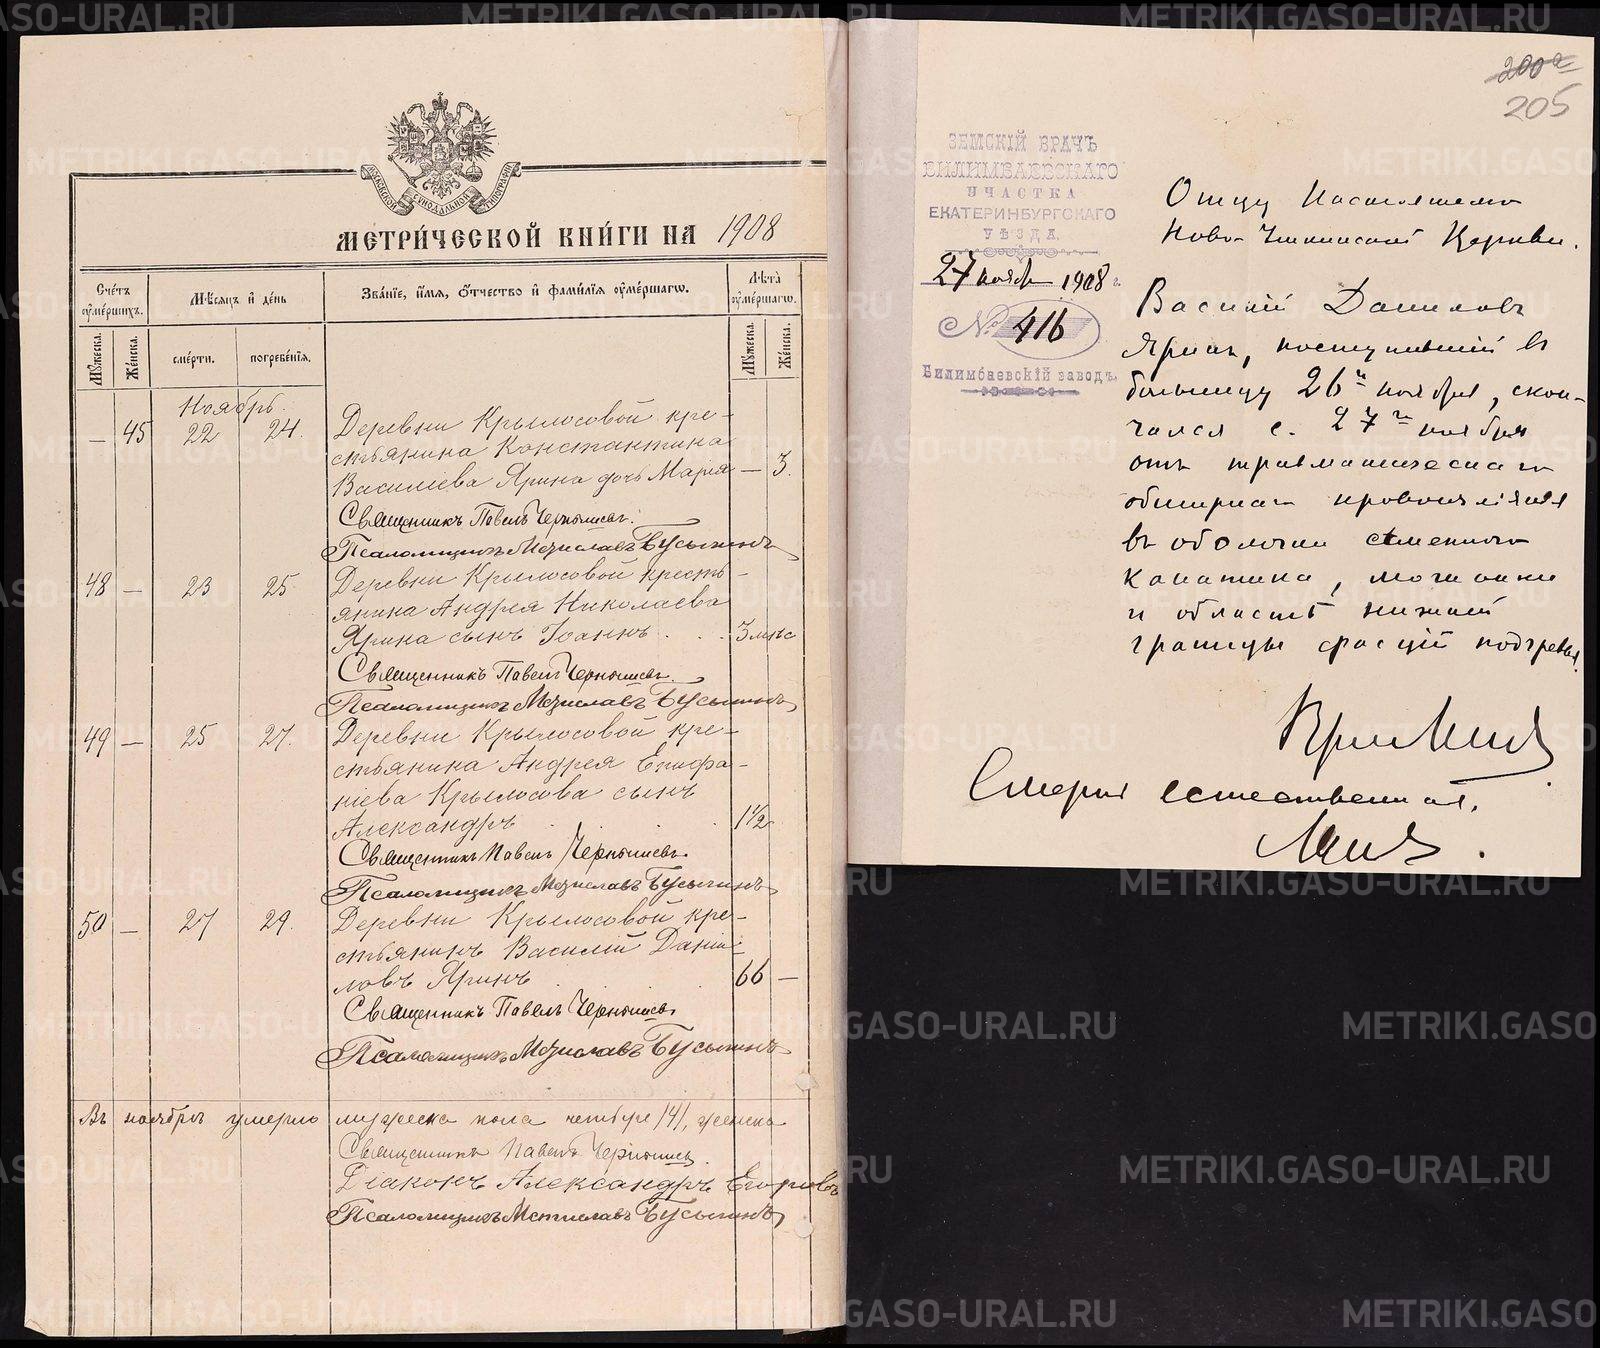 МЕТРИ́ЧЕСКОЙ КНИ́ГИ НА 1908
Сче́тъ ᲂу҆ме́ршихъ.
Мѣ́сяцъ и҆ де́нь
Зва́нїе, и҆́мѧ, ѻ҆́тчество и҆ фами́лїѧ ᲂу҆ме́ршагѡ.
Лѣ́та ᲂу҆ме́ршагѡ.
Мꙋ́жеска.
Же́нска.
сме́рти.
погребе́нїѧ.
Мꙋ́жеска.
Же́нска.
Ноябрь.
— 45 22 24. Деревни Крылосовой кре-
стьянина Константина
Василіева Ярина дочь Марія — 3.
Священникъ Павелъ Чернышевъ.
Псаломщикъ Мстиславъ Бусыгинъ
48 — 23 25. Деревни Крылосовой кресть-
янина Андрея Николаева
Ярина сынъ Іоаннъ . . . 3 мѣс
Священникъ Павелъ Чернышевъ.
Псаломщикъ Мстиславъ Бусыгинъ
49 — 25 27. Деревни Крылосовой кре-
стьянина Андрея Епифа-
ніева Крылосова сынъ
Александръ . . . . 1 1/2
Священникъ Павелъ Чернышевъ.
Псаломщикъ Мстиславъ Бусыгинъ
50 — 27 29. Деревни Крылосовой кре-
стьянинъ Василій Даніи-
ловъ Яринъ . . 66 —
Священникъ Павелъ Чернышевъ
Псаломщикъ Мстиславъ Бусыгинъ
Въ ноябрѣ умерло мужеска пола четыре /4/, женска
Священникъ Павелъ Чернышевъ.
Діаконъ Александръ Егоровъ
Псаломщикъ Мстиславъ Бусыгинъ
205
ЗЕМСКІЙ ВРАЧЪ
БИЛИМБАЕВСКАГО
УЧАСТКА
ЕКАТЕРИНБУРГСКАГО
УѢЗДА.
27 ноября 1908 г.
№ 416
Билимбаевскій заводъ.
Отцу Настоятелю
Ново-Уткинской Церкви.
Василій Даниловъ
Яринъ, поступившій въ
больницу 26го ноября, скон-
чался с. 27го ноября
отъ травматическаго
обширнаго кровоизліянія
въ оболочки сѣменного
канатика, мошонки
и область нижней
границы фасцій подчревья.
Смерть естественная.